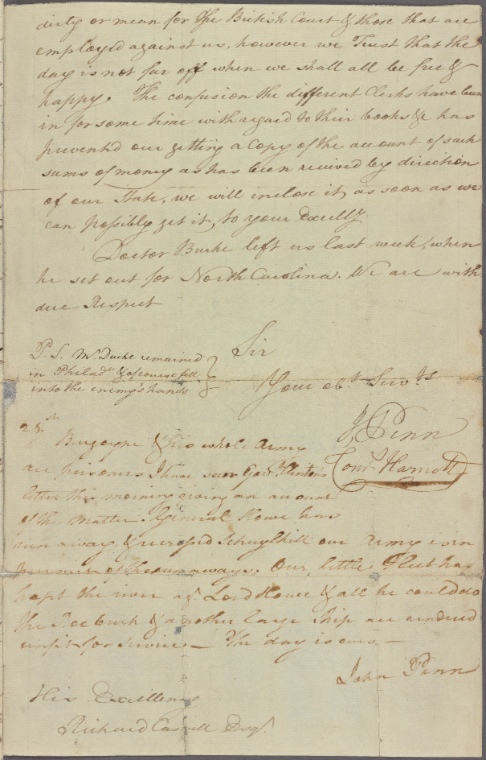 dirty or mean for the British Court & those that are
employed against us, however we Trust that the
day is not far off when we shall all be free &
happy. The confusion the different Clerks have been
in for some time with regard to their books &c has
prevented our getting a Copy of the account of such
sums of money as has been received by direction
of our State, we will inclose it, as soon as we
can possibly get it, to your Excelly.
Doctor Burke left us last week, when
he set out for North Carolina. We are with
due Respect
Sir
P. S. Mr. Duche remained
in Philada. & of course fell
into the enemy's hands
Your obt. Servts
J Penn
Corn. Harnett
25th
Burgoyne & his whole Army
are prisoners I have seen Govr. Clinton's
letter this morning giving an account
of the matter. General Howe has
run away & recrossed Schuylkill our Army is in
pursuit of the runaways. Our little Fleet has
kept the river agt. Lord Howe & all he could do
the Roebuck & another large Ship are rendered
unfit for service — The day is ours —
John Penn
His Excellency
Richard Caswell Esqr.